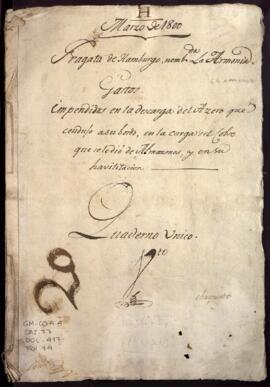 H
Marzo de 1800
Fragata de Hamburgo, nombda La Armonia
Gastos
impendidos en la descarga del Azero que
condujo a su bordo, en la carga del Cobre
que se le dio de Almazenes, y en su
havilitacion.
Quaderno Unico.
20
GM-CO-A A
CAJ. 77
DOC. 417